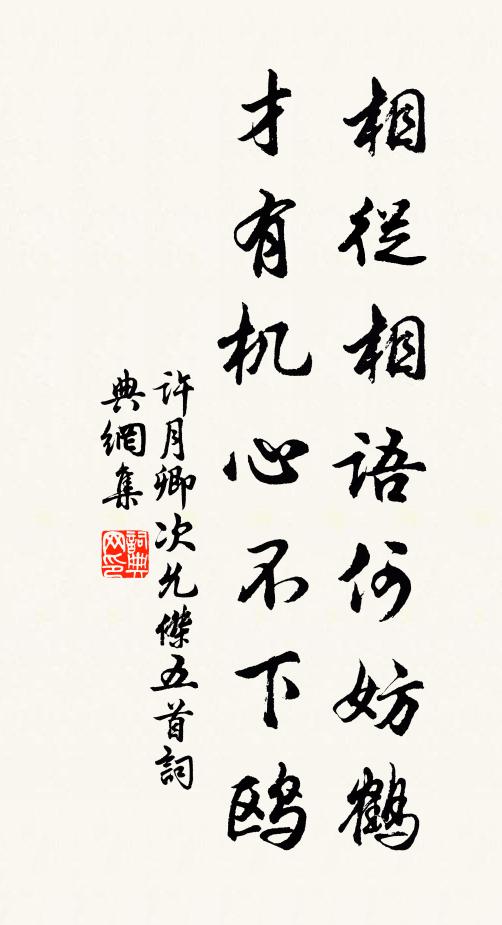 相從相語何妨鶴
才有机心不下鸥
許月卿次允傑五首詞
典網集
詞典网印